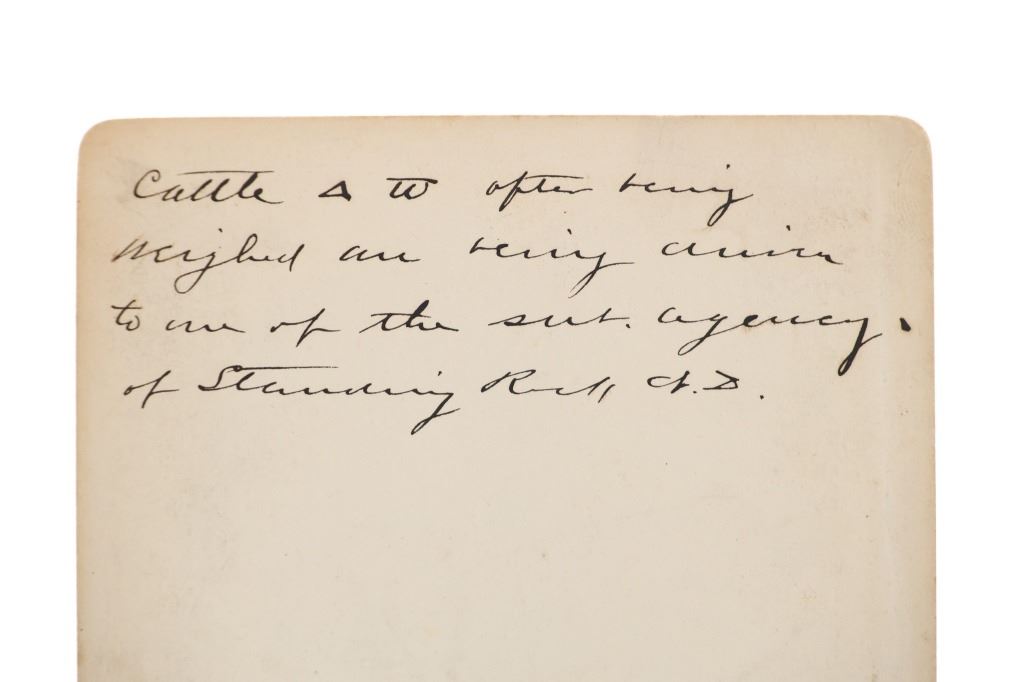 Cattle Δ W after being
weighed are being driven
to one of the sub. agency.
of Standing Rock N.D.